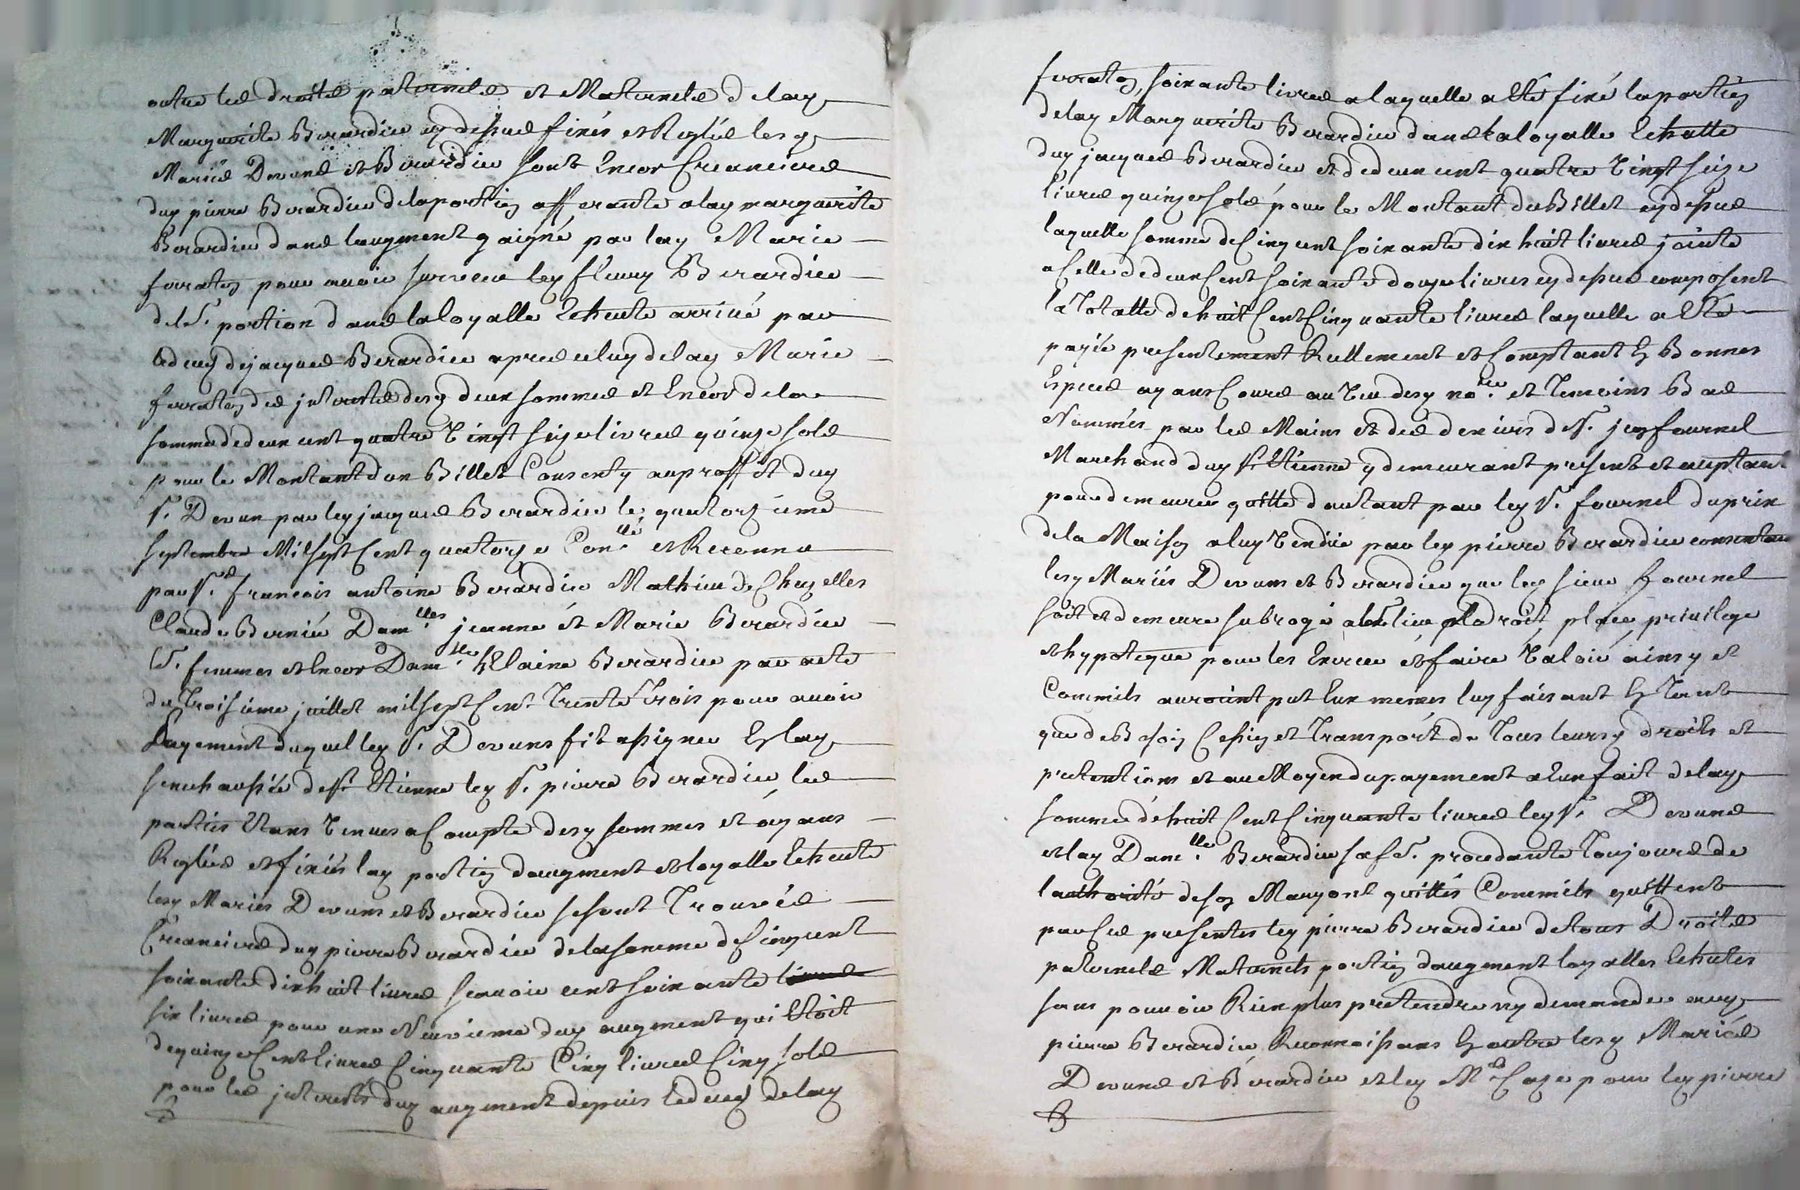 outre les droits paternels et Maternels d lay
Marguerite Berardier cy dessus fixés et Reglés les
Mariés Devuns et Berardier sont Encor Creanciers
duy pierre Berardier delaportion afferante alay marguerite
Berardier dans laugment gaigné par lay Marie
ferraton pour avoir survecu ley fleury Berardier
delad. portion dans laloyalle Echeute arrivé par
deces dejacques Berardier apres celuy delay Marie
ferraton des interests desy deux sommes et Encor dela
somme dedeux cent quatre Vingt seize livres quinze sols
pour le Montant dun Billet Consenty auproffit duy
Sr. Devun par ley jacques Berardier le quatorzieme
septembre Mil sept Cent quatorze Conlé et Reconnu
par Sr. francois antoine Berardier Mathieu de Chazelles
Claude Bernié Damlles jeanne et Marie Berardier
Sr. femmes et Encor Damlle. Helaine Berardier par acte
du Troisieme juillet mil sept Cent Trente Trois pour avoir
Payement duquel ley Sr. Devuns fit assigner En lay
senechaussée de St. Etienne ley Sr. pierre Berardier les
parties Etans Venues a Compte desy sommes et ayans
Reglés et fixés lay portion daugment et loyalle Echeute
lesy Mariés Devuns et Berardier se sont Trouvés
Creanciers duy pierre Berardier de la somme de Cinq cent
soixante dix huit livres scavoir cent soixante livres
six livres pour une Neuvieme duy augment qui Etoit
de quinze Cent livres Cinquante Cinq livres Cinq sols
pour les interests duy augment depuis le deces delay
ferraton, soixante livres a laquelle a Eté fixé la portion
delay Marguerite Berardier dans la loyalle Echutte
duy jacques Berardier et de deux cent quatre Vingt seize
livres quinze sols pour le Montant du Billet cy dessus
laquelle somme de Cinq cent soixante dix huit livres jointe
a Celle de deux Cent soixante douze livres cy dessus composent
la Totalle de huit Cent Cinquante livres laquelle a Eté
payée presentement Reellement et Comptant En Bonnes
Especes ayans Cours au Veu desy nore. et Temoins Bas
Nommés par les Mains et des deniers de Sr. jean fournel
Marchand duy St. Etienne y demeurant present et aceptant
pour demeurer quitte dautant par ley Sr. fournel du prix
dela Maison a luy Vendüe par ley pierre Berardier consentans
lesy Mariés Devuns et Berardier que ley sieur fournel
soit et demeure subrogé a leur lieu droit place privilege
et hypoteque pour les Exercer et faire Valoir ainsy et
Commils auroint put Eux memes luy faisant En Tant
que de Besoin Cession et Transport de Tous leursy droits et
pretentions et au Moyen du payement a Eux fait delay
somme de huit Cent Cinquante livres ley Sr. Devuns
et lay Damlle. Berardier sa fe. procedante Toujours de
lauthorité deson Mary ont quittés Commils quittent
par Ces presentes ley pierre Berardier de tous Droits
paternels Maternels portion daugment loyalles Echutes
sans pouvoir Rien plus pretendre ny demander auy
pierre Berardier Reconnoissans En outre lesy Mariés
Devuns et Berardier et ley Me. Caze pour ley pierre